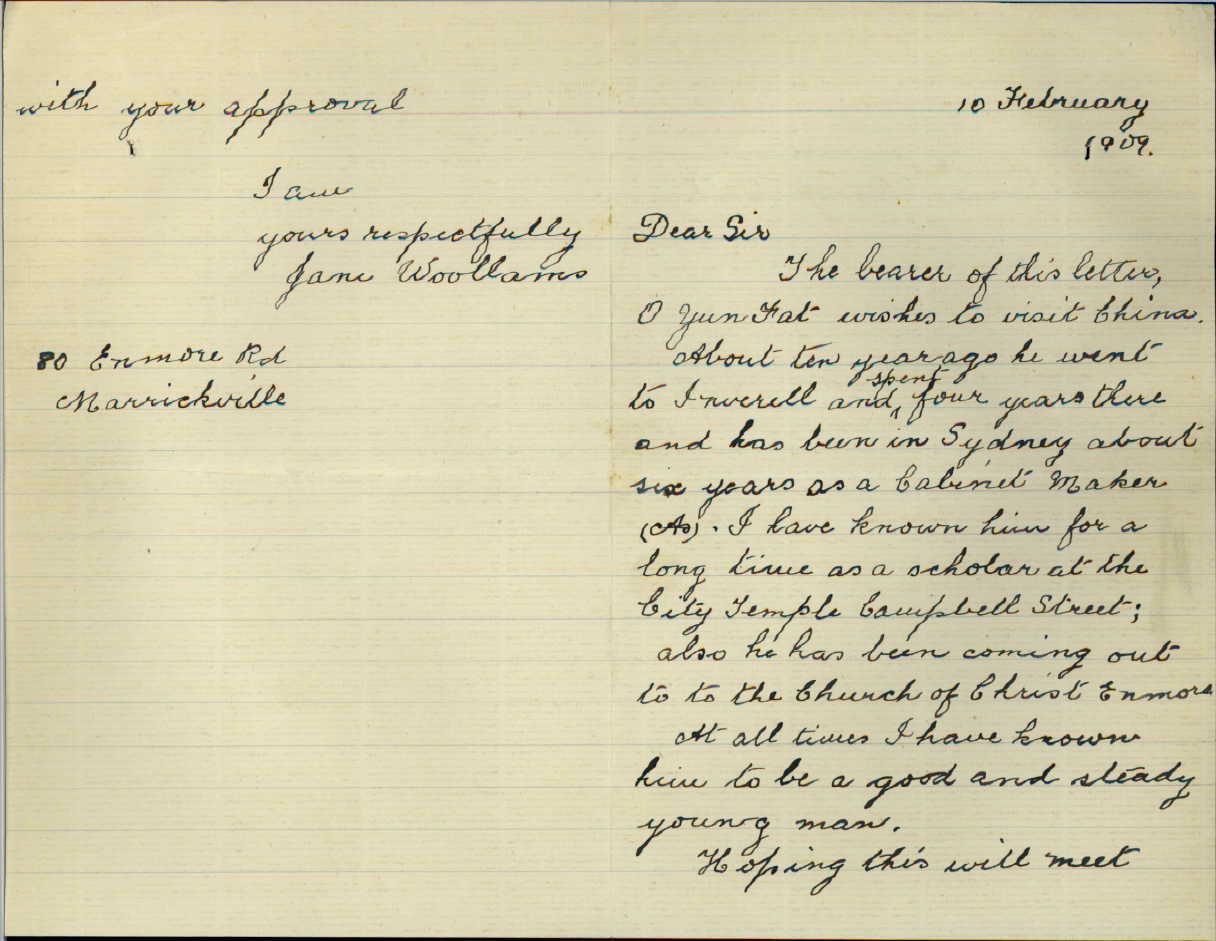 10 February
1909.
Dear Sir
The bearer of this letter,
O Yun Fat wishes to visit China.
About ten year ago he went
to Inverell and spent four years there
and has been in Sydney about
six years as a Cabinet Maker
(As). I have known him for a
long time as a scholar at the
City Temple Campbell Street;
also he has been coming out
to to the Church of Christ Enmore
At all times I have known
him to be a good and steady
young man.
Hoping this will meet
with your approval
I am
yours respectfully
Jane Woollams
80 Enmore Rd
Marrickville